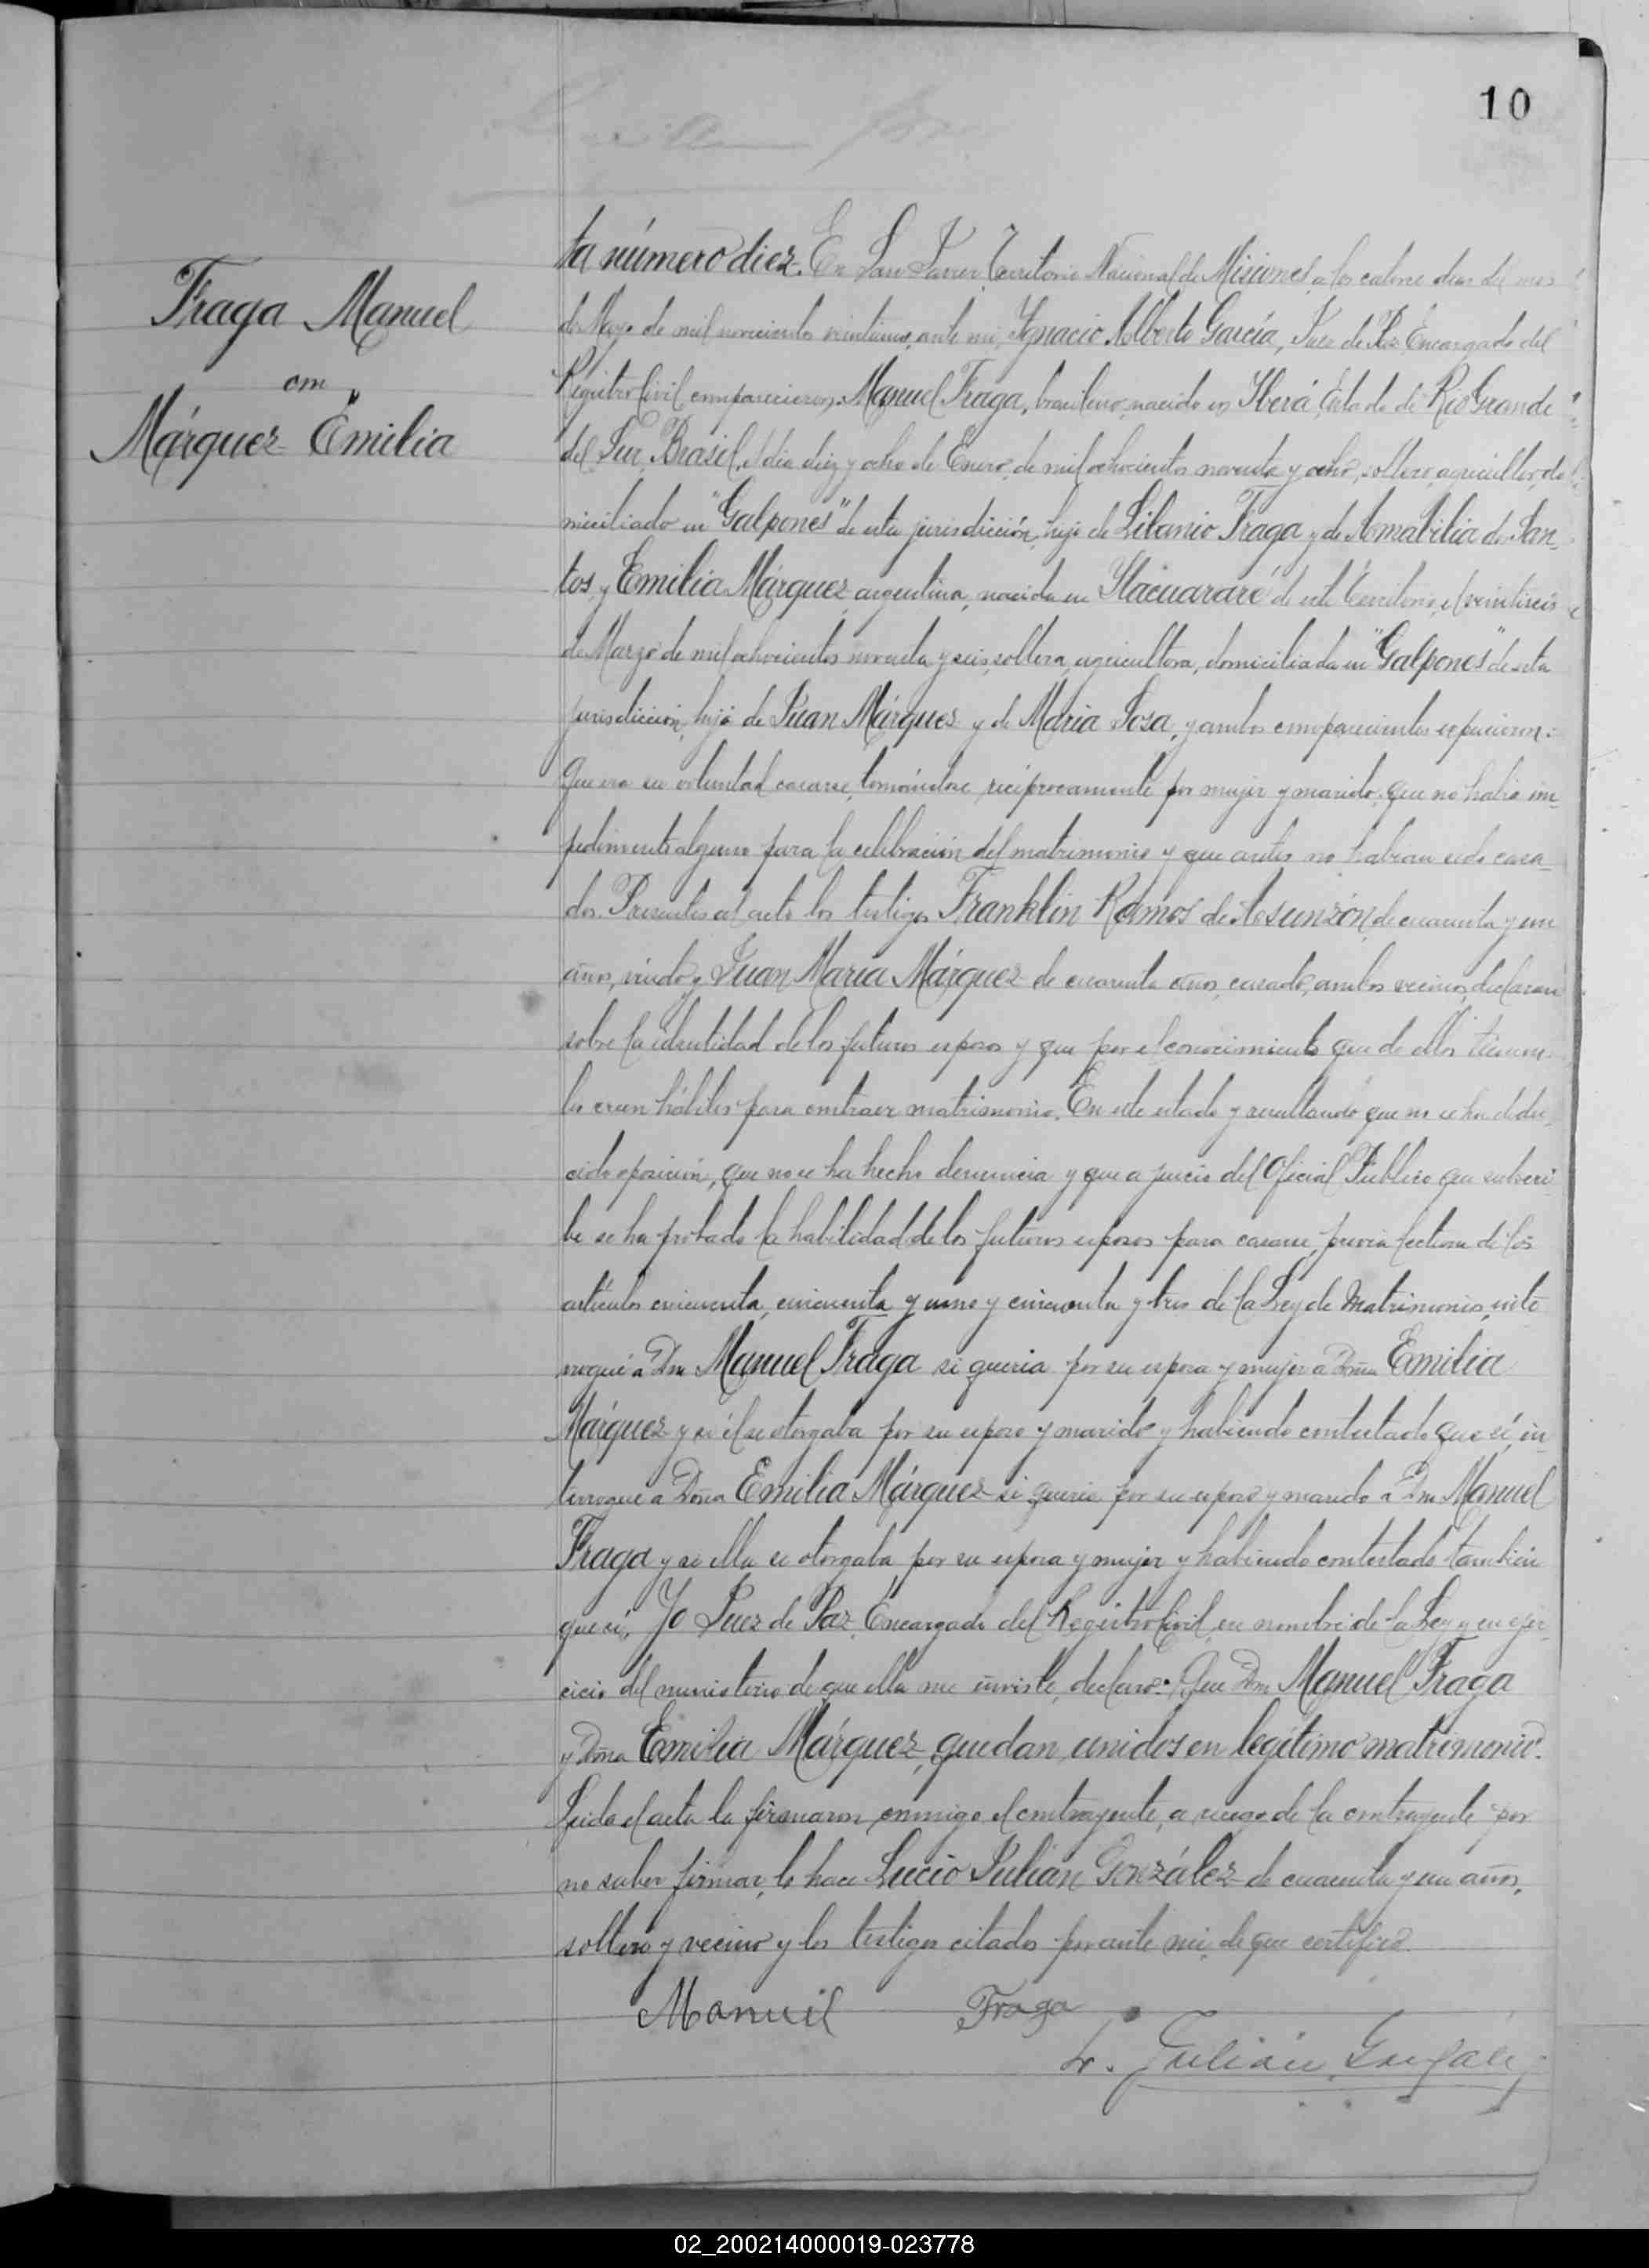 10
Fraga Manuel
con
Márquez Emilia
ta número diez. En San Javier, Territorio Nacional de Misiones, a los catorce dias del mes
de Mayo de mil novecientos veintiuno, ante mi, Ygnacio Alberto García, Juez de Paz Encargado del
Registro Civil comparecieron: Manuel Fraga, brasilero, nacido en Yberá, Estado de Rio Grande
del Sur, Brasil, el dia diez y ocho de Enero de mil ochocientos noventa y ocho, soltero, agricultor, do
miciliado en "Galpones" de esta jurisdicción, hijo de Libanio Fraga y de Amabilia do San-
tos y Emilia Márquez, argentina, nacida en Ytacuararé de este Territorio, el veintiseis
de Marzo de mil ochocientos noventa y seis, soltera, agricultora, domiciliada en "Galpones" de esta
jurisdicción, hija de Juan Márques y de Maria Sosa, y ambos comparecientes expusieron:
Que era su voluntad casarse, tomándose reciprocamente por mujer y marido; que no habia im-
pedimento alguno para la celebración del matrimonio y que antes no habian sido casa-
dos. Presentes al acto los testigos Franklin Ramos de Asunzón, de cuarenta y un
años, viudo y Juan María Márquez de cuarenta años, casado, ambos vecinos, declaran
sobre la identidad de los futuros esposos y que por el conocimiento que de ellos tienen
los creen hábiles para contraer matrimonio. En este estado y resultando que no se ha dedu
cido oposición, que no se ha hecho denuncia y que a juicio del Oficial Público que subscri
be se ha probado la habilidad de los futuros esposos para casarse, previa lectura de los
artículos cincuenta, cincuenta y uno y cincuenta y tres de la Ley de Matrimonio, inte
rrogué a Don Manuel Fraga si queria por su esposa y mujer a Doña Emilia
Márquez y si él se otorgaba por su esposo y marido y habiendo contestado que sí, in-
terrogué a Doña Emilia Márquez si queria por su esposo y marido a Don Manuel
Fraga y si ella se otorgaba por su esposa y mujer y habiendo contestado tambien
que sí, Yo Juez de Paz Encargado del Registro Civil, en nombre de la Ley y en ejer
cicio del ministerio de que ella me inviste, declaro: Que Don Manuel Fraga
y Doña Emilia Márquez, quedan unidos en legítimo matrimonio.
Leida el acta la firmaron conmigo el contrayente, a ruego de la contrayente por
no saber firmar, lo hace Lucio Julián González de cuarenta y un años,
soltero y vecino y los testigos citados por ante mi, de que certifico.
Manuel Fraga
L. Julián González
02_200214000019-023778